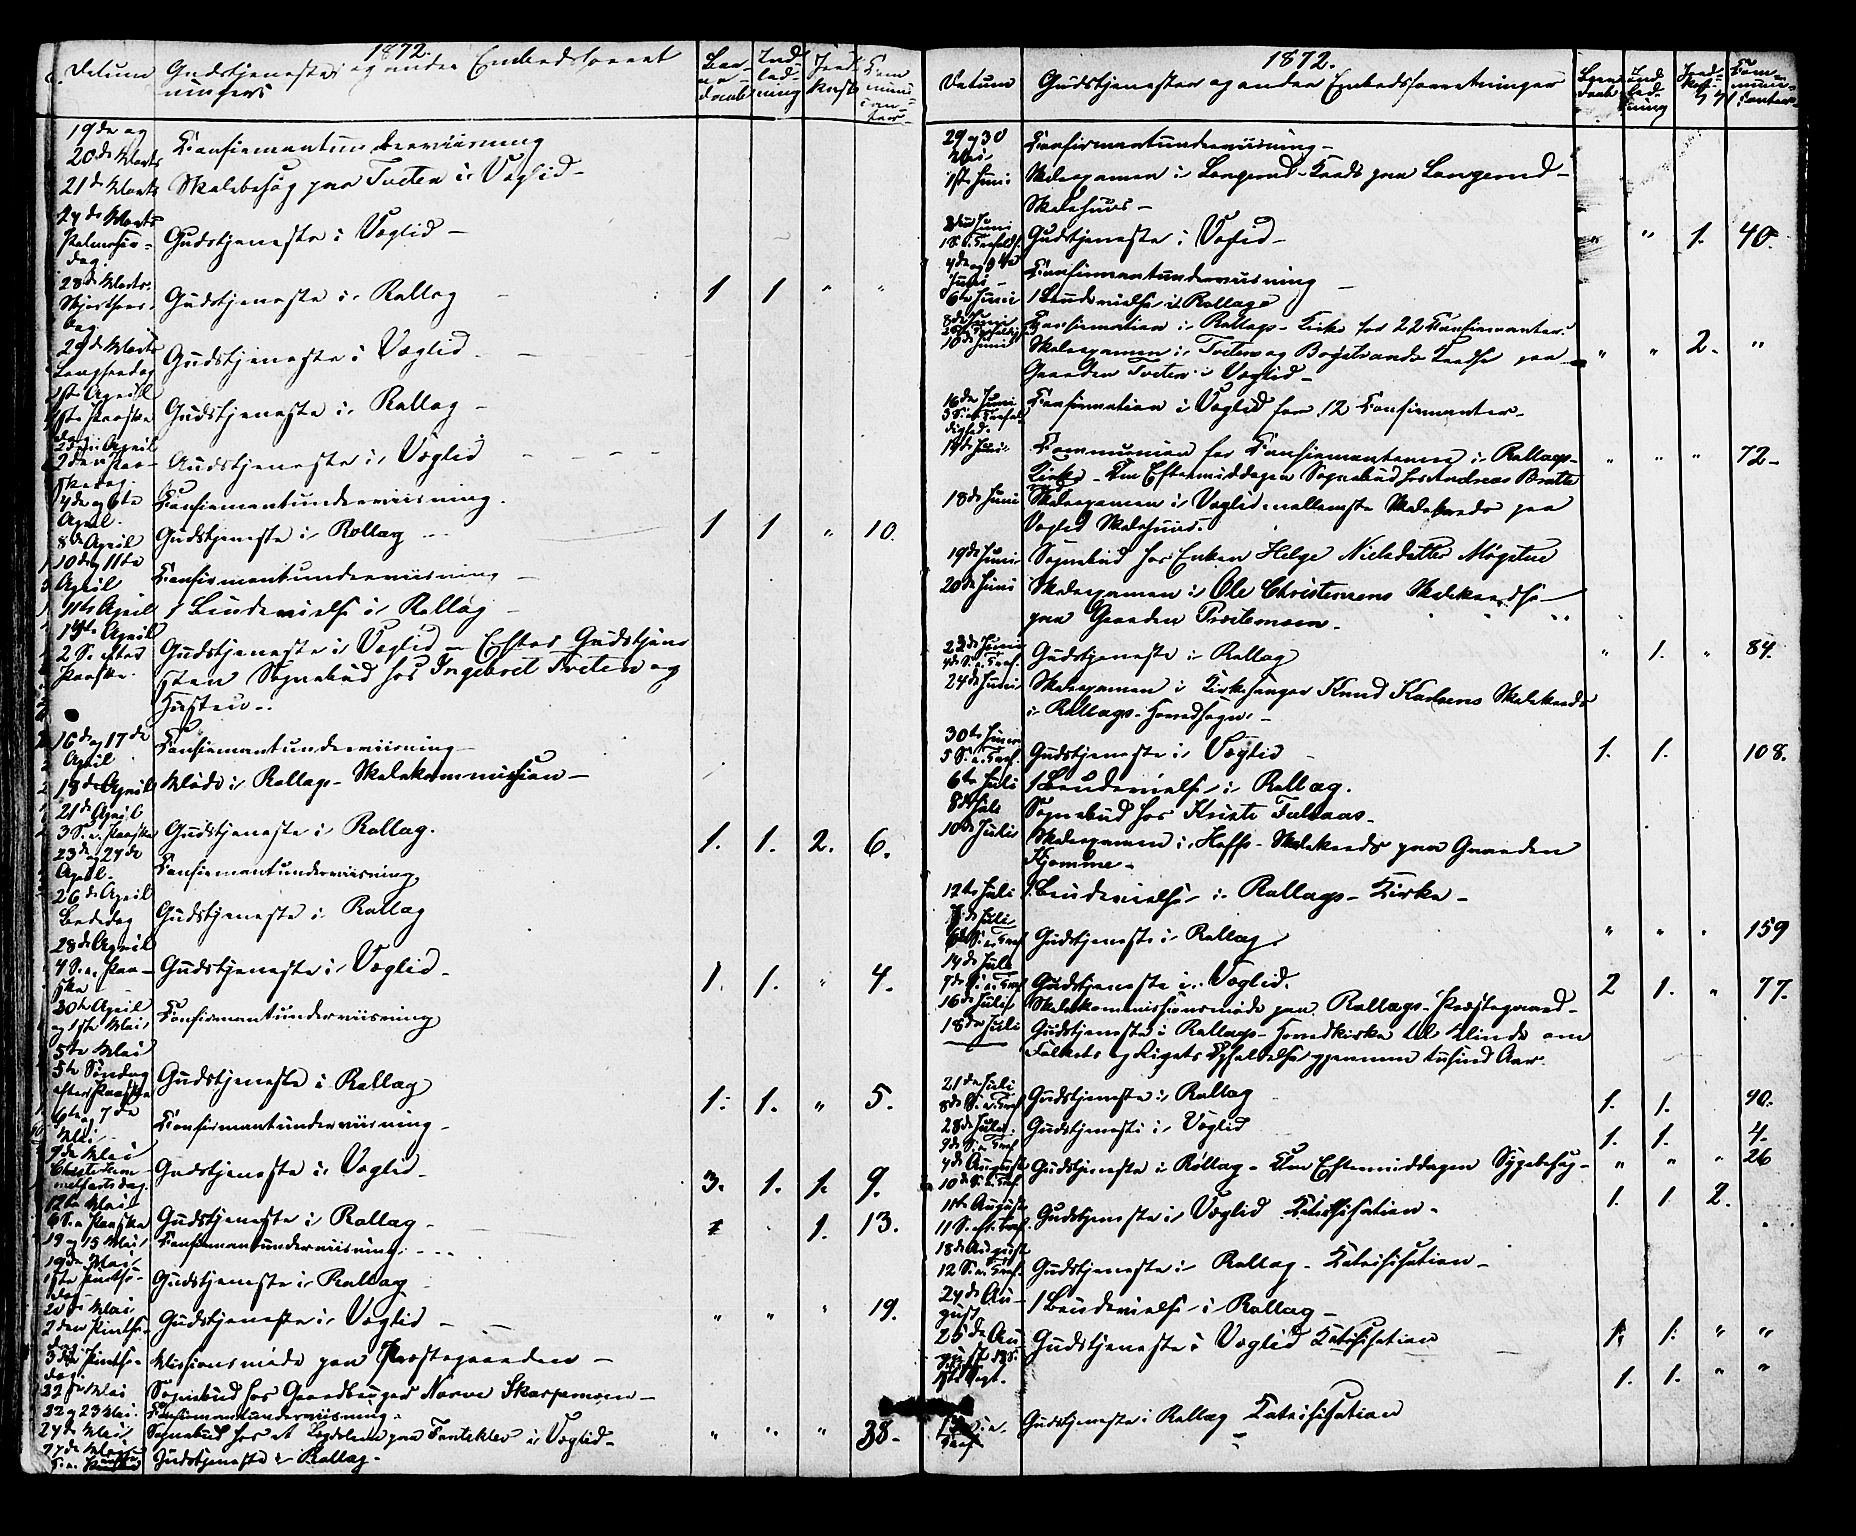 1872.
Datum Gudstjenester og andre Embedsforret
ninger
Bar
ne
daab
Ind
led
ning
Jord
kast
Com
muni
can
ter
19de og
20de Marts Konfirmantunderviisning
21de Marts Skolebesøg paa Tveten i Væglid -
24de Marts
Palmesøn-
dag. Gudstjeneste i Væglid -
28de Marts
Skjærthors
dag Gudstjeneste i Rollag - 1 1 " "
29de Marts
Langfredag Gudstjeneste i Væglid.
1ste April
1ste Paaske
dag Gudstjeneste i Rollag -
2den April
2den Paa-
skedag. Gudstjeneste i Væglid - - - -
4de og 6te
April. Konfirmantunderviisning.
8de April Gudstjeneste i Rollag ... 1 1 " 10.
10de og 11te
April Konfirmantunderviisning -
11te April 1 Brudevielse i Rollag -
14de April
2 S. efter
Paaske. Gudstjeneste i Væglid - Efter Gudstjene
sten Sognebud hos Ingebret Tveten og
Hustru..
16de og 17de
April Konfirmantunderviisning
18de April Møde i Rollags - Skolekommission -
21de April
3 S. e. Paaske Gudstjeneste i Rollag. 1. 1. 2. 6.
23de og 24de
April. Konfirmantunderviisning
26de April
Bededag Gudstjeneste i Rollag
28de April
4 S. e. Paa-
ske Gudstjeneste i Væglid - 1. 1. " 4.
30te April
og 1ste Mai Konfirmantunderviisning
5te Mai
5te Søndag
efter Paaske Gudstjeneste i Rollag 1. 1. " 5.
6te og 7de
Mai Konfirmantunderviisning -
9de Mai
Christi Him
melfartsdag. Gudstjeneste i Væglid - 3. 1. 1. 9.
12te Mai
6 S. e Paaske Gudstjeneste i Rollag - 1. 13.
14 og 15 Mai Konfirmantunderviisning. - - -
19de Mai
1ste Pintse-
dag Gudstjeneste i Rollag
20de Mai
2den Pintse-
dag Gudstjeneste i Væglid - - " " " 19.
3die Pintse-
dag. Missionsmøde paa Præstegaarden -
22de Mai Sognebud hos Gaardbruger Narve Skarpemoen -
22 og 23 Mai. Konfirmantunderviisning.
24de Mai Sognebud hos et Lægdslem paa i Væglid - " " " 38.
Gudstjeneste i Rollag -
1872.
Datum Gudstjenester og andre Embedsforretninger
Barne
daab
Ind
led
ning
Jords
kast
Com
muni
canter
29 og 30
Mai Konfirmantunderviisning -
1ste Juni Skoleexamen i Langerud-Kreds paa Langerud -
Skolehuus -
2den Juni
1 S. e. Trefoldh. Gudstjeneste i Væglid - " " 1. 40.
4de og 5te
Juni - Konfirmantunderviisning
6te Juni 1 Brudevielse i Rollag
Konfirmation i Rollags - Kirke for 22 Konfirmanter. " " 2. "
10de Juni Skoleexamen i Tveten og Kredse paa
Gaarden Tveten i Væglid -
16de Juni
3 S. e. Trefol-
dighed. Konfirmation i Væglid for 12 Konfirmanter -
17de Juni Kommunion for Konfirmanterne i Rollags- " " " 72 -
Kirke - Om Eftermiddagen Sognebud hos Andreas Bratte
18de Juni Skoleexamen i Væglid mellemste Skolekreds paa
Væglid Skolehuus.
19de Juni Sognebud hos Enken Helge Nielsdatter
20de Juni Skoleexamen i Ole Christensens Skolekredse
paa Gaarden Prestemoen.
23de Juni
4de S. e. Tref. Gudstjeneste i Rollag " 1. " 84.
24de Juni Skoleexamen i Kirkesanger Knud Karlsens Skolekreds
i Rollags - Hovedsogn. -
30te Juni
5 S. e. Tref. Gudstjeneste i Væglid 1. 1. 108.
6te Juli 1 Brudevielse i Rollag.
8de Juli Sognebud hos Kristi Fulsaas -
10de Juli Skoleexamen i Hoffs - Skolekreds paa Gaarden
Kjomme -
12te Juli 1 Brudevielse i Rollags - Kirke -
7de Juli
6te S. e. Tref Gudstjeneste i Rollag " " . 159
14de Juli
7de S. e. Tref Gudstjeneste i Væglid. 2 1. " 77.
16de Juli Skolekommissionsmøde paa Rollags - Præstegaard -
18de Juli Gudstjeneste i Rollags - Hovedkirke til Minde om
Folkets og Rigets gjennem tusind Aar.
21de Juli
8de S. e. Tref Gudstjeneste i Rollag 1. 1. 40.
28de Juli
9de S. e. Tref. Gudstjeneste i Væglid 1. 1. 4.
4de August
10de S. e. Tref. Gudstjeneste i Rollag - Om Eftermiddagen Sygebesøg - " " " 26
11te August
11 S. eft. Tref. Gudstjeneste i Væglid Katekisation - 1. 1. 2.
18de August
12 S. e. Tref. Gudstjeneste i Rollag - Katekisation -
24de Au-
gust 1 Brudevielse i Rollag -
25de Au
gust 13 S. Gudstjeneste i Væglid Katekisation 1. 1. " "
1ste Sept. 1. 1. " "
Gudstjeneste i Rollag Katekisation